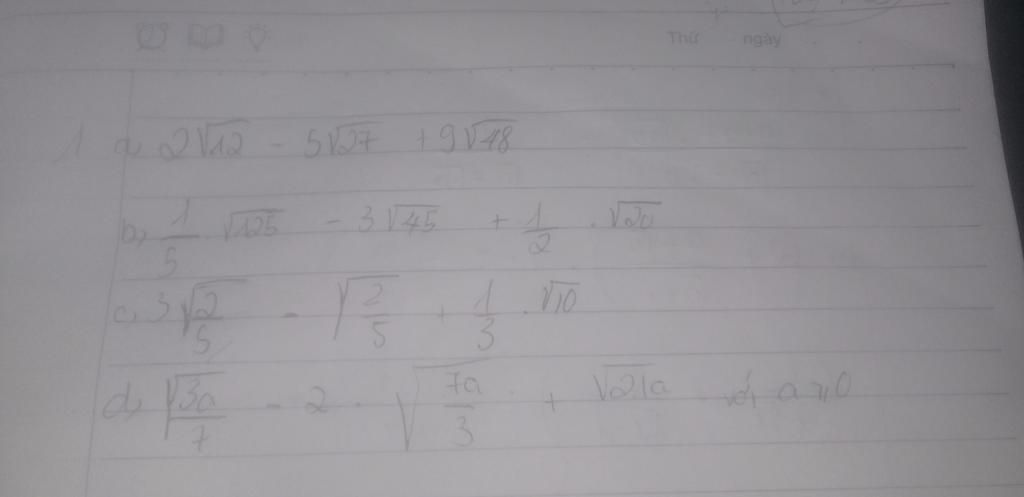 Thứ ngày
1 a, 2√12 - 5√27 + 9√48
b, 1/5 √125 - 3√45 + 1/2 . √20
c, 3√(2/5) - √(2/5) + 1/3 . √10
d, √(3a/7) - 2 . √(7a/3) + √21a với a ⩾ 0